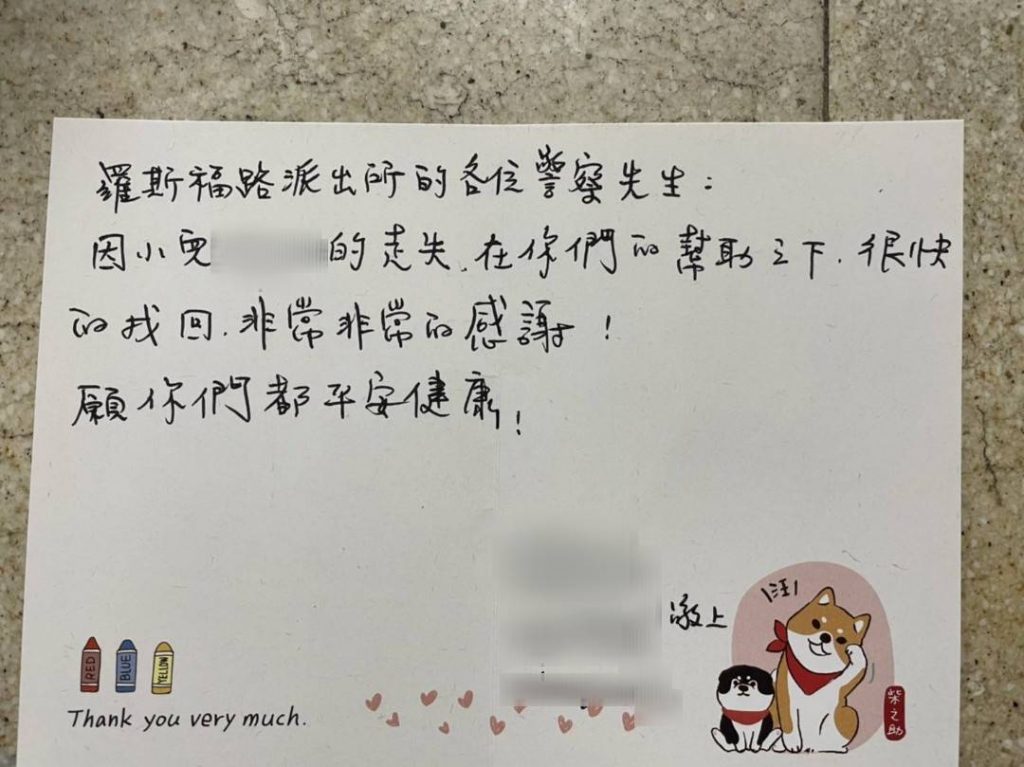 羅斯福路派出所的各位警察先生：
因小兒的走失.在你們的幫助之下.很快
的找回.非常非常的感謝！
願你們都平安健康！
敬上
汪
RED
BLUE
YELLOW
Thank you very much.
柴之助